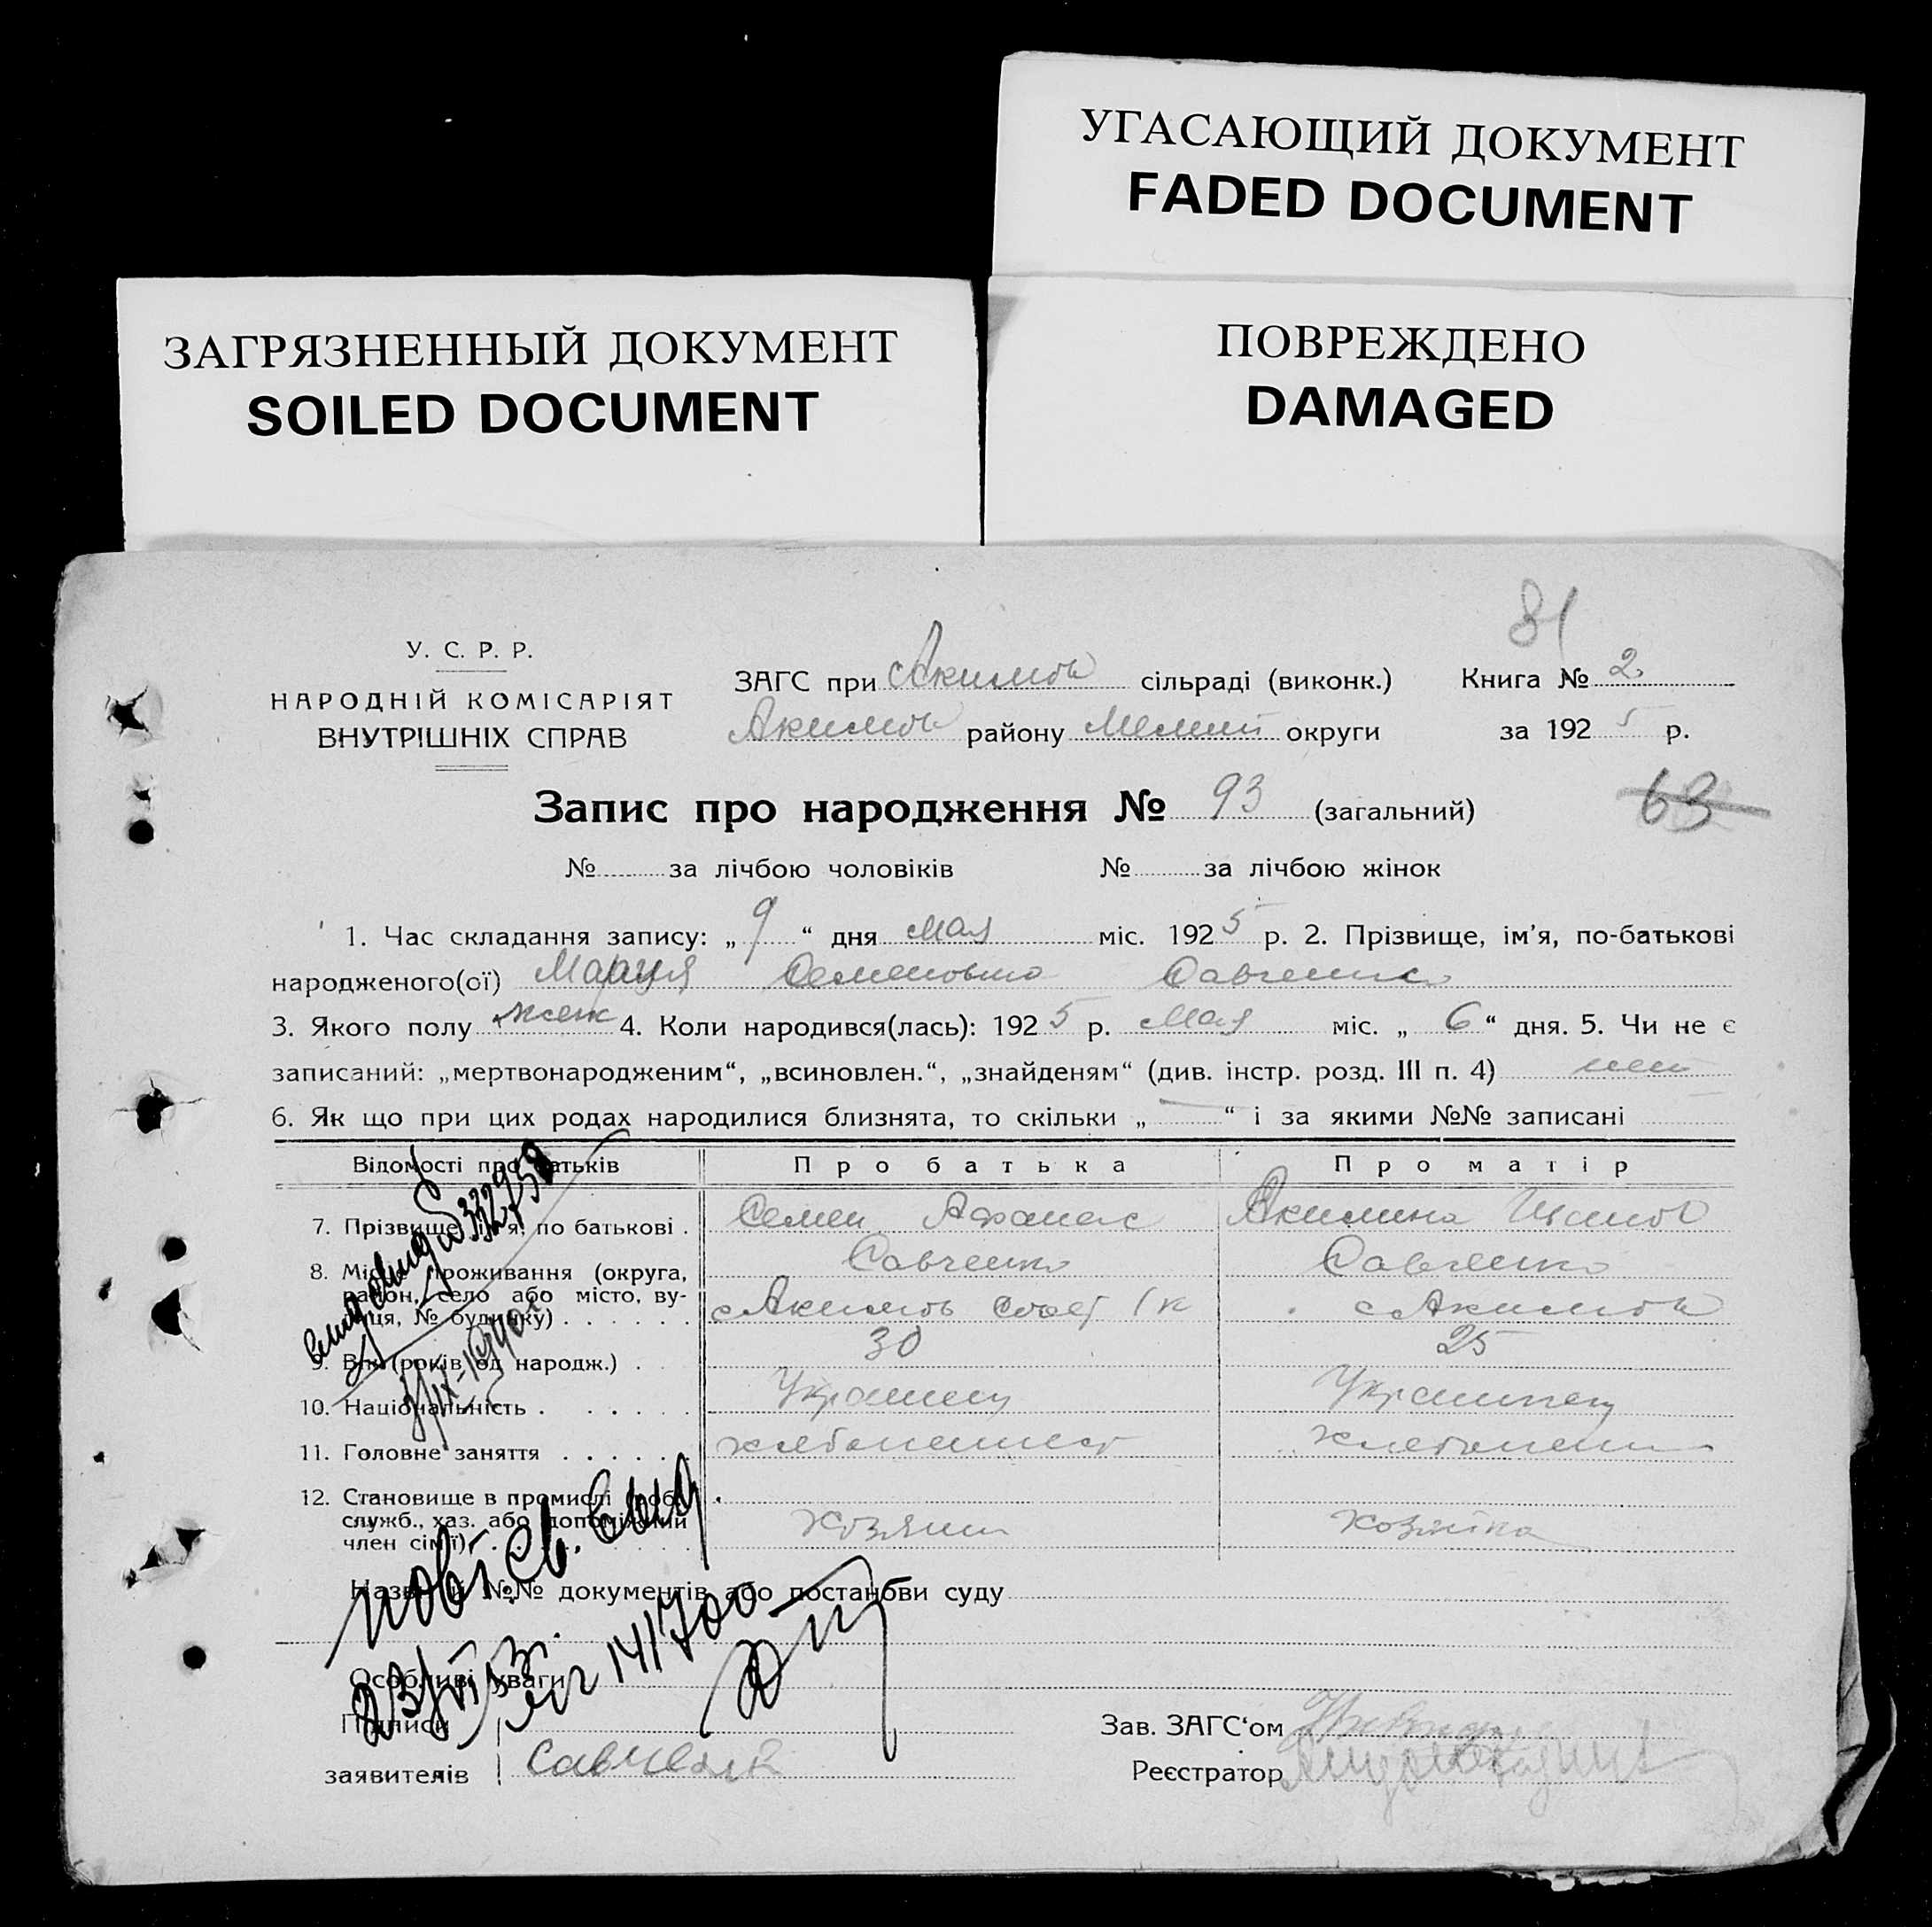 УГАСАЮЩИЙ ДОКУМЕНТ
FADED DOCUMENT
ЗАГРЯЗНЕННЫЙ ДОКУМЕНТ
SOILED DOCUMENT
ПОВРЕЖДЕНО
DAMAGED
81
У. С. Р. Р.
НАРОДНІЙ КОМІСАРІЯТ
ВНУТРІШНІХ СПРАВ
ЗАГС при Акимов сільраді (виконк.) Книга № 2
Акимов району Мелит округи за 1925 р.
Запис про народження № 93 (загальний)
63
№ за лічбою чоловіків № за лічбою жінок
1. Час складання запису: „ 9 “ дня мая міс. 1925 р. 2. Прізвище, ім’я, по-батькові
народженого(ої) Мария Семеновна Савченко
3. Якого полу жен 4. Коли народився(лась): 1925 р. Мая міс. „ 6 “ дня. 5. Чи не є
записаний: „мертвонародженим“, „всиновлен.“, „знайденям“ (див. інстр. розд. III п. 4) нет
6. Як що при цих родах народилися близнята, то скільки „ — “ і за якими №№ записані
Відомості про батьків Про батька Про матір
7. Прізвище, ім’я, по батькові . Семен Афанас Акилина
Савченко Савченко
8. Місце проживання (округа,
район, село або місто, ву-
лиця, № будинку) . . . . . . с Акимов с Акимов
9. Вік (років од народж.) . . 30 25
10. Національність . . . . . Украинец Украинец
11. Головне заняття . . . . . . хлебопашест хлебопаш
12. Становище в промислі (роб.,
служб., хаз. або допоміжний
член сім’ї) . . . . Хозяин Хозяйка
Назви й №№ документів або постанови суду
Особливі уваги
Підписи
заявителів Савченко
Зав. ЗАГС‘ом
Реєстратор
332758
1940
повт св. выд
141700